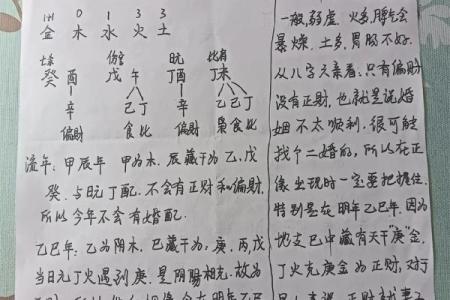 1+1 0 1 3 3
金 木 水 火 土
七杀 伤官 日元 比肩
癸酉 戊午 丁酉 丁未
辛 己丁 辛 乙己丁
偏财 食比 偏财 枭食比
流年：甲辰年 甲为木，辰藏干为乙、戊
癸，与日元丁配，不会有正财和偏财，
所以今年不会有婚配
乙巳年：乙为阴木，巳藏干为：庚、丙戊
当日元丁火遇到庚，是阴阳相克，故为
一般，弱虚，火多，脾气会
暴燥，土多，胃肠不好.
从八字元素看：只有偏财
没有正财，也就是说婚
姻不太顺利，很可能
找个二婚的，所以在正
缘出现时一定要把握住，
特别是在明年乙巳年，因为
地支巳中藏有天干"庚"金，
丁火克庚金为正财，对于